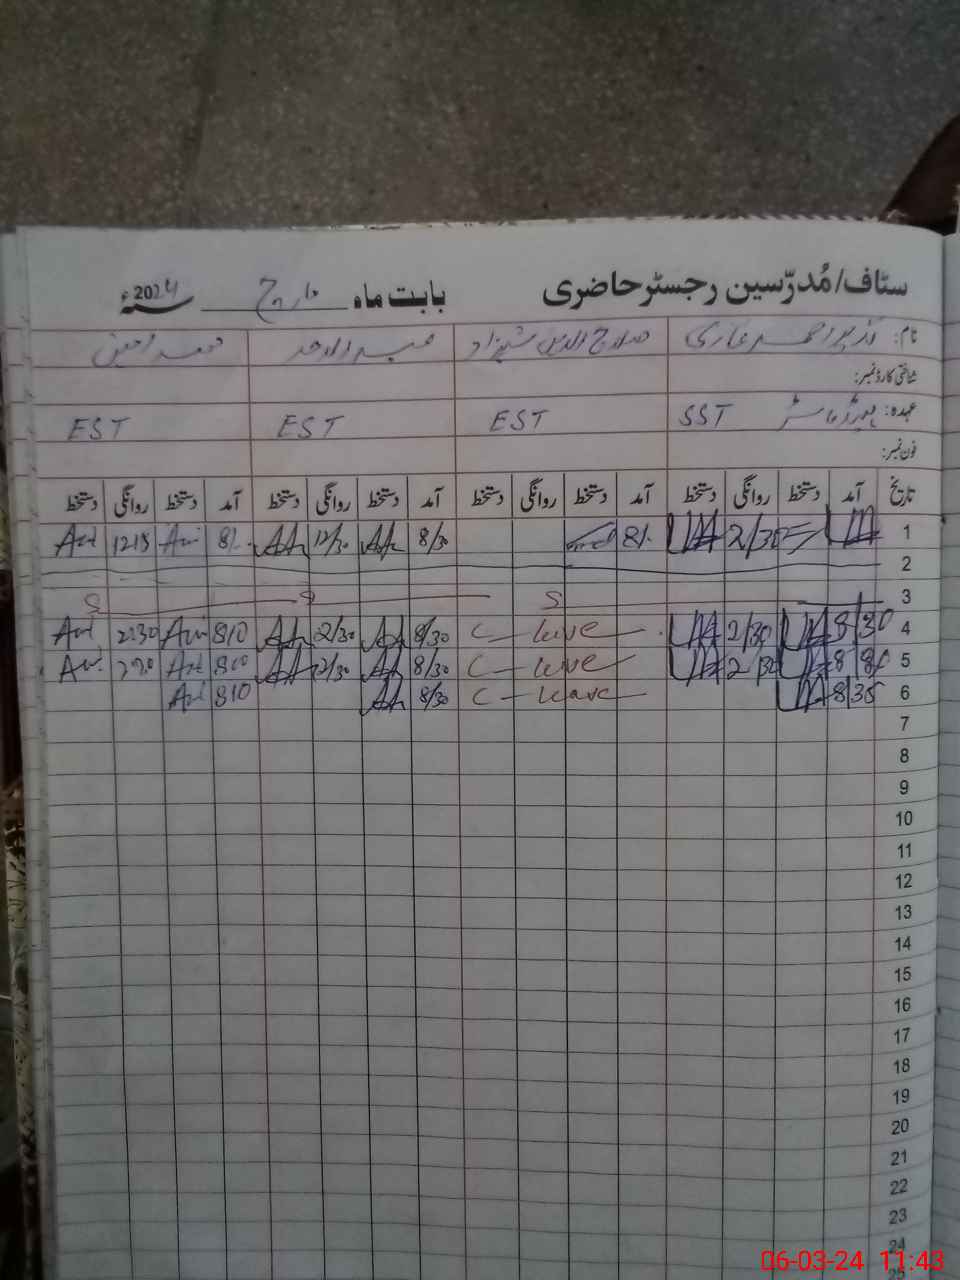 سٹاف/مُدرّسین رجسٹر حاضری بابت ماہ مارچ 2024ء
نام: نذیر احمد غازی صلاح الدین شہزاد عبدالاحد
شناختی کارڈ نمبر:
عہدہ: ہیڈ ماسٹر SST EST EST EST
فون نمبر:
تاریخ آمد دستخط روانگی دستخط آمد دستخط روانگی دستخط آمد دستخط روانگی دستخط آمد دستخط روانگی دستخط
1 2/30 8/. 8/30 12/30 8/. 1215
2
3 S S S
4 8/30 2/30 C - leave 8/30 2/30 810 2230
5 8/30 2/30 C - leave 8/30 2/30 810 230
6 8/35 C - leave 8/30 810
7
8
9
10
11
12
13
14
15
16
17
18
19
20
21
22
23
24
25
06-03-24 11:43